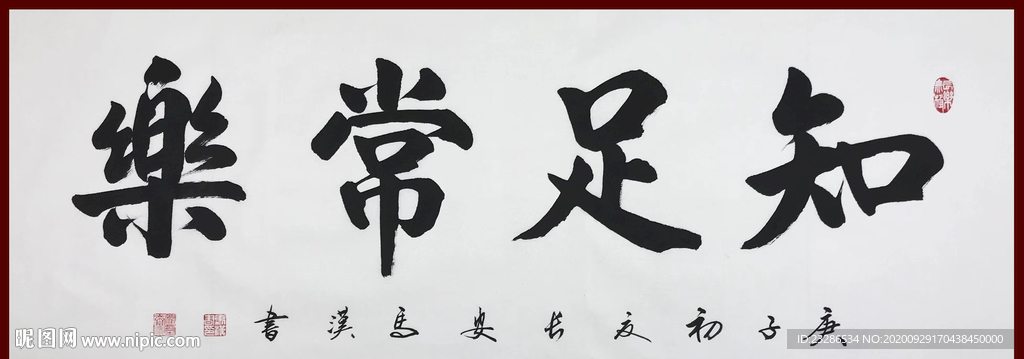 知足常樂
庚子初夏長安馬漢書
昵图网 www.nipic.com
ID:23286534 NO:20200929170438450000